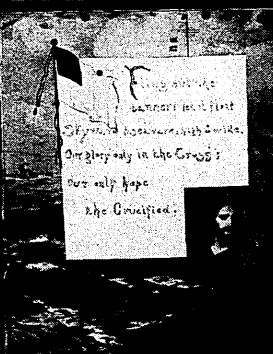 Fling out the
banner! let it float
Skyward & seaward high & wide.
Our glory only in the Cross;
Our only hope
the Crucified.